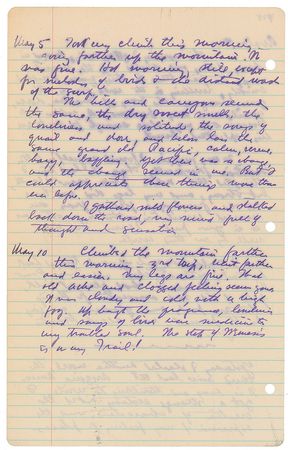 May 5 Took my climb this morning,
going farther up the mountain. It
was fine. Hot morning. Still except
for melody of birds & the distant wash
of the surf.
The hills and canyons seemed
the same, the dry sweet smell, the
loneliness and solitude, the songs of
quail and dove, and below lay the
same grand old Pacific, calm, serene,
hazy, baffling. Yet there was a change,
and the change seemed in me. But I
could appreciate these things more than
ever before.
I gathered wild flowers, and
back down the road, my mind full of
thought and sensation
May 10 Climbed the mountain farther
this morning. 3rd trip, went farther
and easier. My legs are fine. That
old ache and clogged feeling seem gone.
It was cloudy and cold, with a high
fog. Up high the fragrance, loneliness
and songs of birds was medicine to
my troubled soul. The
is on my Trail!